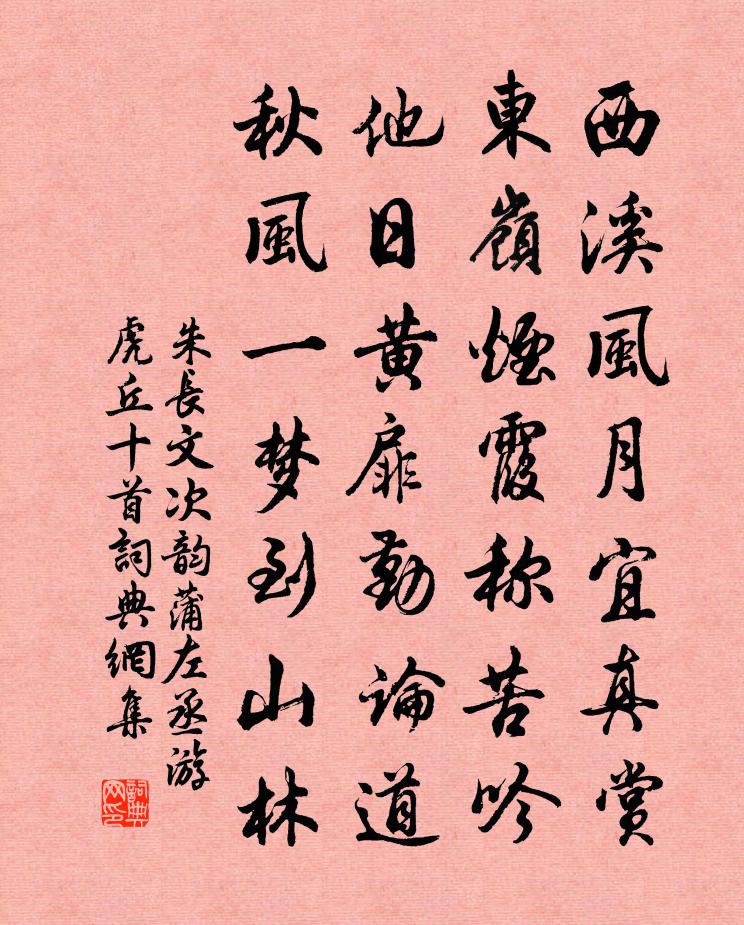 西溪風月宜真赏
東嶺煙霞称苦吟
他日黄扉勤論道
秋風一梦到山林
朱長文次韵蒲左丞游
虎丘十首詞典網集
詞典
网印